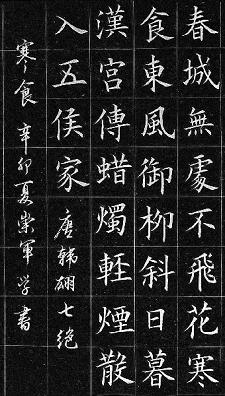 春城無處不飛花寒
食東風御柳斜日暮
漢宮傳蜡燭輕煙散
入五侯家 唐韩翃七绝
寒食 辛卯夏崇軍学書